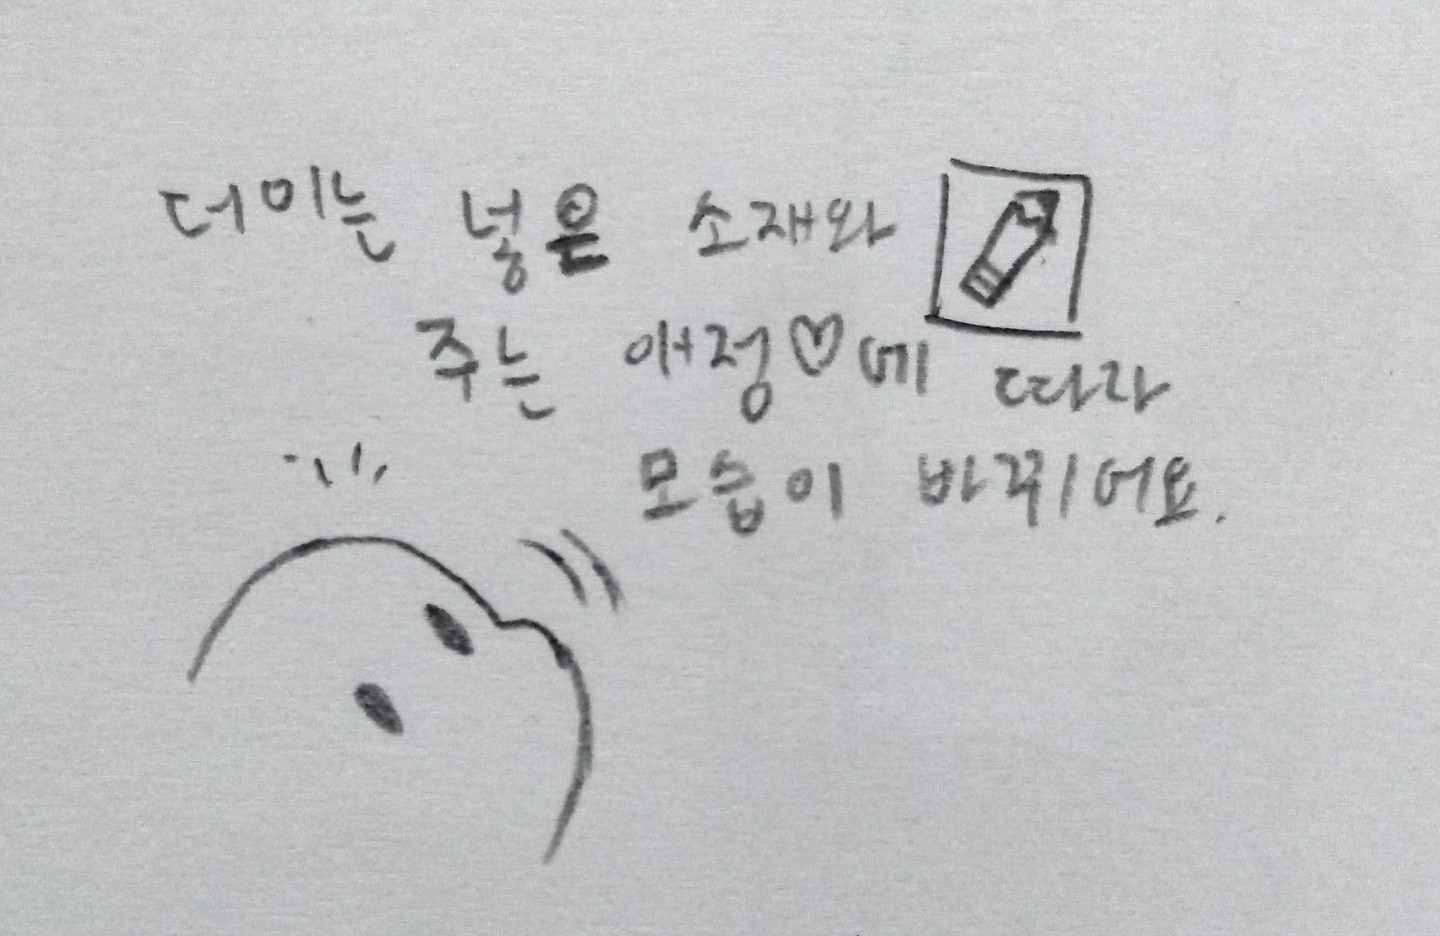 더미는 넣은 소재와
주는 애정♡에 따라
모습이 바뀌어요.